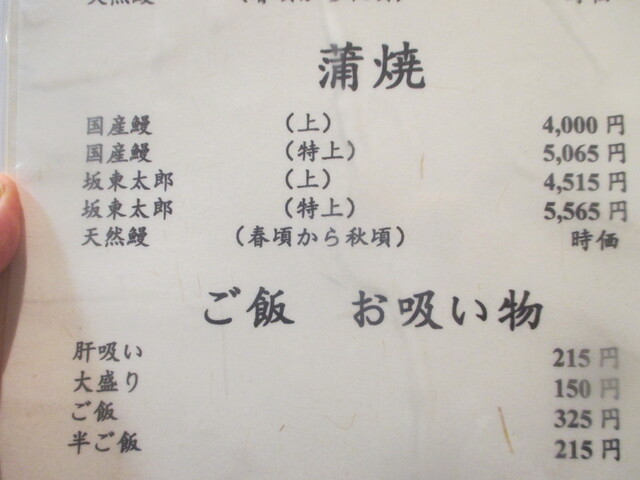 天然鰻 （春頃から秋頃） 時価
蒲焼
国産鰻 （上） 4,000 円
国産鰻 （特上） 5,065 円
坂東太郎 （上） 4,515 円
坂東太郎 （特上） 5,565 円
天然鰻 （春頃から秋頃） 時価
ご飯 お吸い物
肝吸い 215 円
大盛り 150 円
ご飯 325 円
半ご飯 215 円